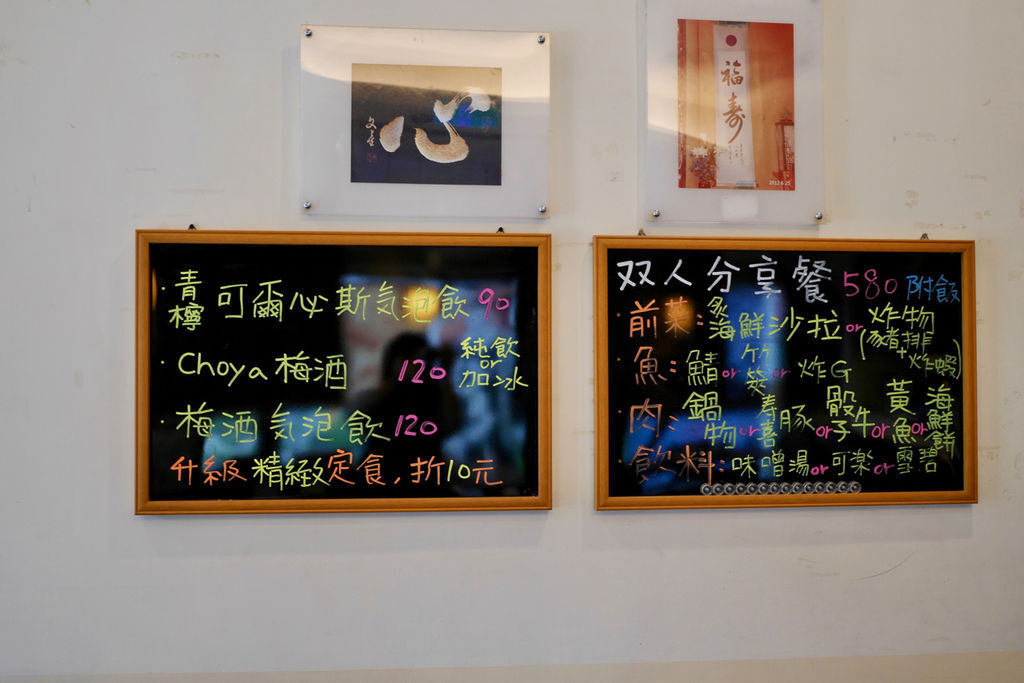 心
福壽
2012 6 25
·青檸可爾必斯氣泡飲 90
·Choya梅酒 120 純飲or加冰
·梅酒氣泡飲 120
升級精緻定食,折10元
双人分享餐 580 附飯
·前菜:炙海鮮沙拉or炸物(豬排+炸蝦)
·魚:鯖or竹筴or炸G
·肉:鍋物or壽喜豚or骰子牛or黃魚or海鮮餅
·飲料:味噌湯or可楽or雪碧